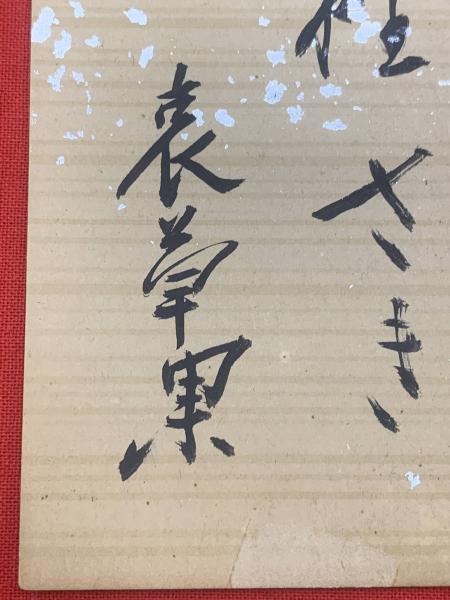 さき
哀草果